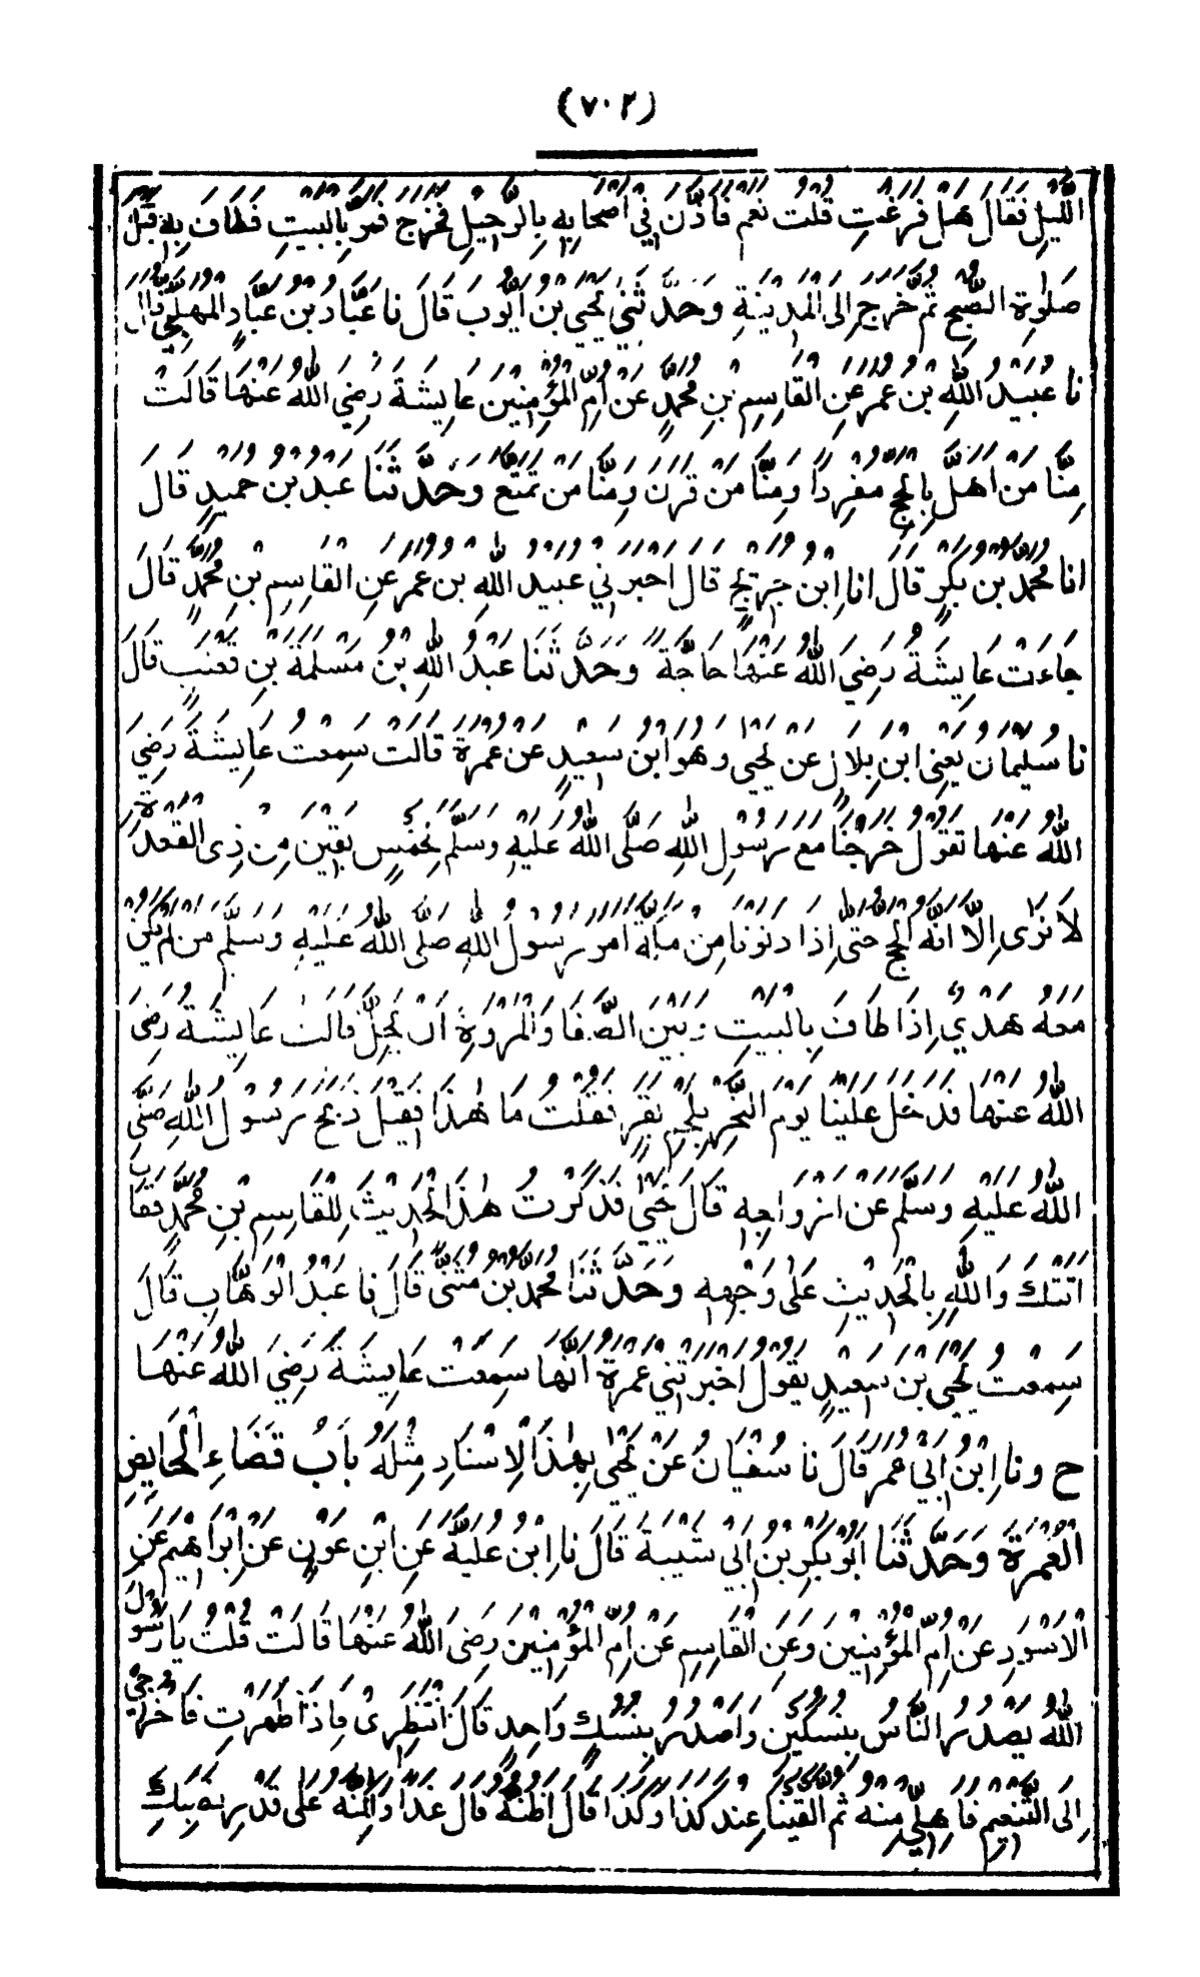 (٧٠٢)
اللَّيْلِ فَقَالَ هَلْ فَرَغْتِ قُلْتُ نَعَمْ فَأَذَّنَ فِي أَصْحَابِهِ بِالرَّحِيْلِ فَخَرَجَ فَمَرَّ بِالْبَيْتِ فَطَافَ بِهِ قَبْلَ
صَلٰوةِ الصُّبْحِ ثُمَّ خَرَجَ إِلَى الْمَدِيْنَةِ وَحَدَّثَنِي يَحْيَى بْنُ أَيُّوبَ قَالَ نا عَبَّادُ بْنُ عَبَّادٍ الْمُهَلَّبِيُّ قَالَ
نا عُبَيْدُ اللّٰهِ بْنُ عُمَرَ عَنِ الْقَاسِمِ بْنِ مُحَمَّدٍ عَنْ أُمِّ الْمُؤْمِنِيْنَ عَايِشَةَ رَضِيَ اللّٰهُ عَنْهَا قَالَتْ
مِنَّا مَنْ أَهَلَّ بِالْحَجِّ مُفْرِدًا وَمِنَّا مَنْ قَرَنَ وَمِنَّا مَنْ تَمَتَّعَ وَحَدَّثَنَا عَبْدُ بْنُ حُمَيْدٍ قَالَ
انا مُحَمَّدُ بْنُ بَكْرٍ قَالَ انا ابْنُ جُرَيْجٍ قَالَ أَخْبَرَنِي عُبَيْدُ اللّٰهِ بْنُ عُمَرَ عَنِ الْقَاسِمِ بْنِ مُحَمَّدٍ قَالَ
جَاءَتْ عَايِشَةُ رَضِيَ اللّٰهُ عَنْهَا حَاجَّةً وَحَدَّثَنَا عَبْدُ اللّٰهِ بْنُ مَسْلَمَةَ بْنِ قَعْنَبٍ قَالَ
نا سُلَيْمَانُ يَعْنِى ابْنَ بِلَالٍ عَنْ يَحْيَى وَهُوَ ابْنُ سَعِيْدٍ عَنْ عَمْرَةَ قَالَتْ سَمِعْتُ عَايِشَةَ رَضِيَ
اللّٰهُ عَنْهَا تَقُوْلُ خَرَجْنَا مَعَ رَسُوْلِ اللّٰهِ صَلَّى اللّٰهُ عَلَيْهِ وَسَلَّمَ لِخَمْسٍ بَقِيْنَ مِنْ ذِى الْقَعْدَةِ
لَا نَرٰى اِلَّا اَنَّهُ الْحَجُّ حَتّٰى اِذَا دَنَوْنَا مِنْ مَكَّةَ اَمَرَ رَسُوْلُ اللّٰهِ صَلَّى اللّٰهُ عَلَيْهِ وَسَلَّمَ مَنْ لَمْ يَكُنْ
مَعَهُ هَدْيٌ اِذَا طَافَ بِالْبَيْتِ وَبَيْنَ الصَّفَا وَالْمَرْوَةِ اَنْ يَحِلَّ قَالَتْ عَايِشَةُ رَضِيَ
اللّٰهُ عَنْهَا فَدُخِلَ عَلَيْنَا يَوْمَ النَّحْرِ بِلَحْمِ بَقَرٍ فَقُلْتُ مَا هٰذَا فَقِيْلَ ذَبَحَ رَسُوْلُ اللّٰهِ صَلَّى
اللّٰهُ عَلَيْهِ وَسَلَّمَ عَنْ اَزْوَاجِهِ قَالَ يَحْيٰى فَذَكَرْتُ هٰذَا الْحَدِيْثَ لِلْقَاسِمِ بْنِ مُحَمَّدٍ فَقَالَ
اَتَتْكَ وَاللّٰهِ بِالْحَدِيْثِ عَلٰى وَجْهِهِ وَحَدَّثَنَا مُحَمَّدُ بْنُ مُثَنّٰى قَالَ نا عَبْدُ الْوَهَّابِ قَالَ
سَمِعْتُ يَحْيَى بْنَ سَعِيْدٍ يَقُوْلُ اَخْبَرَتْنِي عَمْرَةُ اَنَّهَا سَمِعَتْ عَايِشَةَ رَضِيَ اللّٰهُ عَنْهَا
ح ونا ابْنُ اَبِي عُمَرَ قَالَ نا سُفْيَانُ عَنْ يَحْيٰى بِهٰذَا الْاِسْنَادِ مِثْلَهُ بَابُ قَضَاءِ الْحَايِضِ
الْعُمْرَةَ وَحَدَّثَنَا اَبُوْ بَكْرِ بْنُ اَبِي شَيْبَةَ قَالَ نا ابْنُ عُلَيَّةَ عَنِ ابْنِ عَوْنٍ عَنْ اِبْرَاهِيْمَ عَنِ
الْاَسْوَدِ عَنْ اُمِّ الْمُؤْمِنِيْنَ وَعَنِ الْقَاسِمِ عَنْ اُمِّ الْمُؤْمِنِيْنَ رَضِيَ اللّٰهُ عَنْهَا قَالَتْ قُلْتُ يَا رَسُوْلَ
اللّٰهِ يَصْدُرُ النَّاسُ بِنُسُكَيْنِ وَاَصْدُرُ بِنُسُكٍ وَاحِدٍ قَالَ انْتَظِرِىْ فَاِذَا طَهُرْتِ فَاخْرُجِيْ
اِلَى التَّنْعِيْمِ فَاَهِلِّي مِنْهُ ثُمَّ الْقَيْنَا عِنْدَ كَذَا وَكَذَا قَالَ اَظُنُّهُ قَالَ غَدًا وَلٰكِنَّهُ عَلٰى قَدْرِ